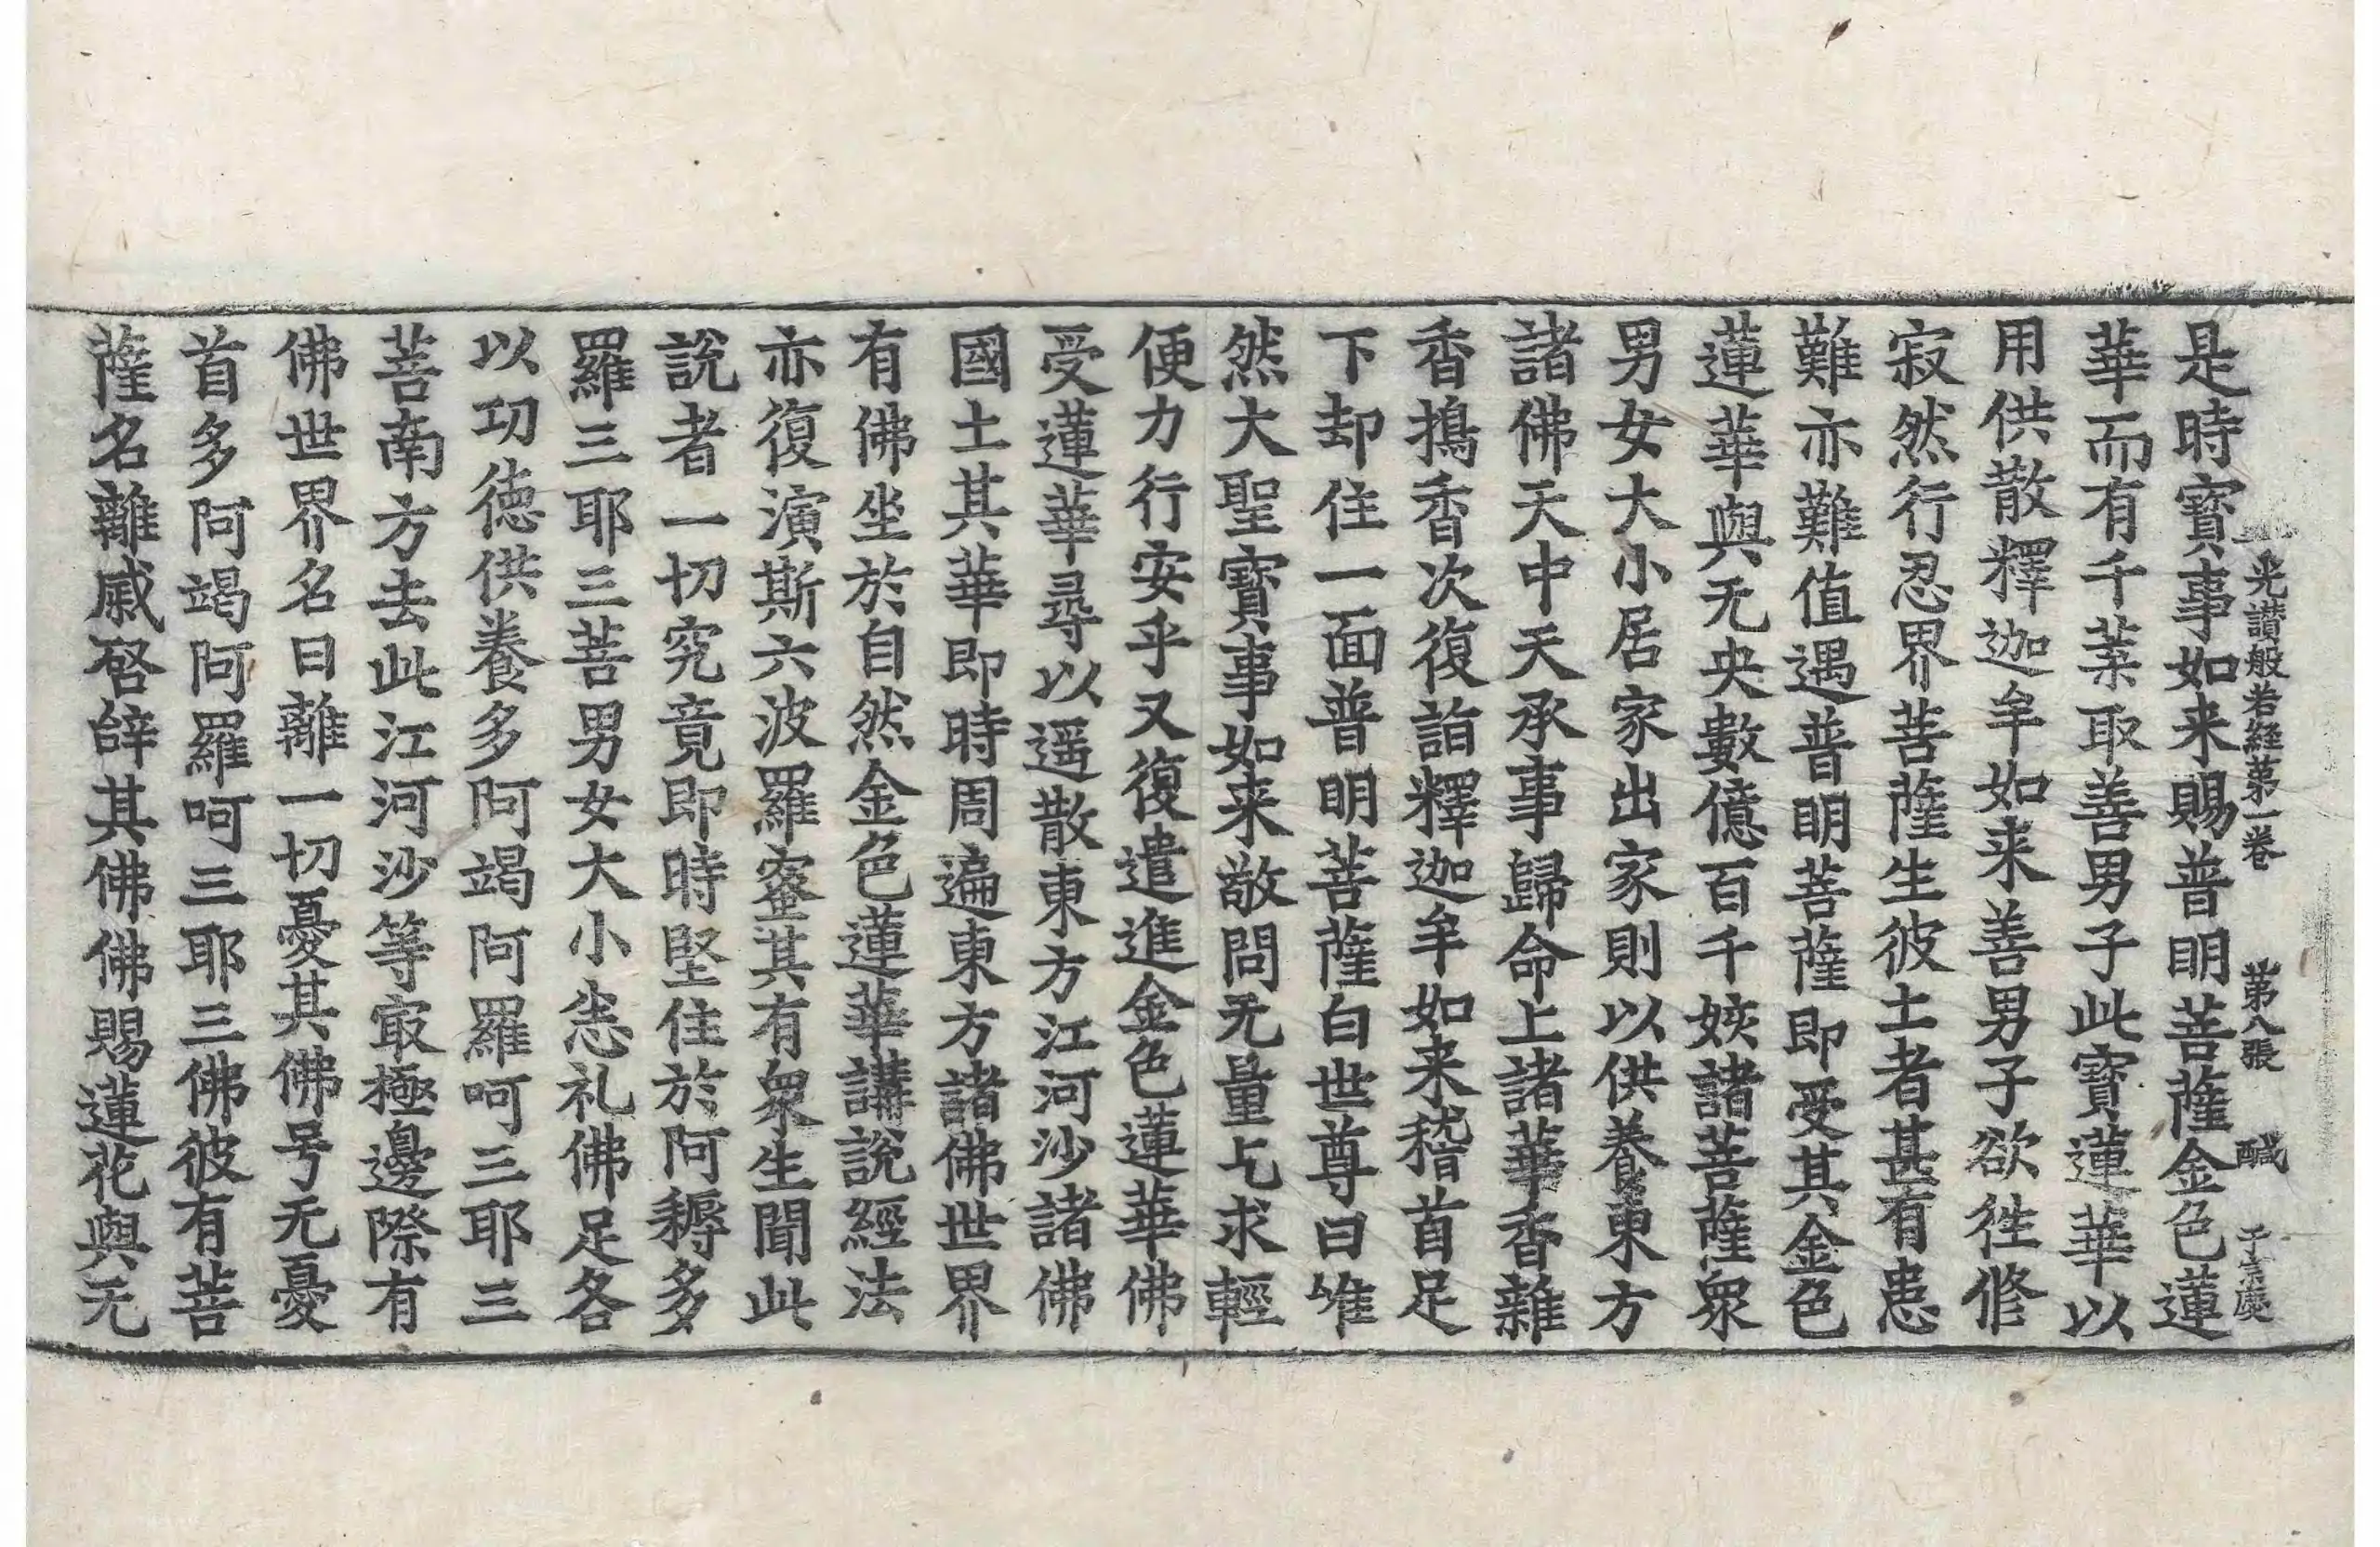 光讚般若經第一卷 第八張 醎
是時寶事如来賜普明菩薩金色蓮
華而有千葉取善男子此寶蓮華以
用供散釋迦牟如来善男子欲徃俢
寂然行忍界菩薩生彼土者甚有患
難亦難值遇普明菩薩即受其金色
蓮華與无央數億百千姟諸菩薩衆
男女大小居家出家則以供養東方
諸佛天中天承事歸命上諸華香雜
香擣香次復詣釋迦牟如来稽首足
下却住一面普明菩薩白世尊曰唯
然大聖寶事如来敬問无量乞求輕
便力行安乎又復遣進金色蓮華佛
受蓮華尋以遥散東方江河沙諸佛
國土其華即時周遍東方諸佛世界
有佛坐於自然金色蓮華講説經法
亦復演斯六波羅蜜其有衆生聞此
説者一切究竟即時堅住於阿耨多
羅三耶三菩男女大小恙礼佛足各
以功徳供養多阿竭阿羅呵三耶三
菩南方去此江河沙等㝡極邊際有
佛世界名曰離一切憂其佛号无憂
首多阿竭阿羅呵三耶三佛彼有菩
薩名離慼啓辝其佛佛賜蓮花與无